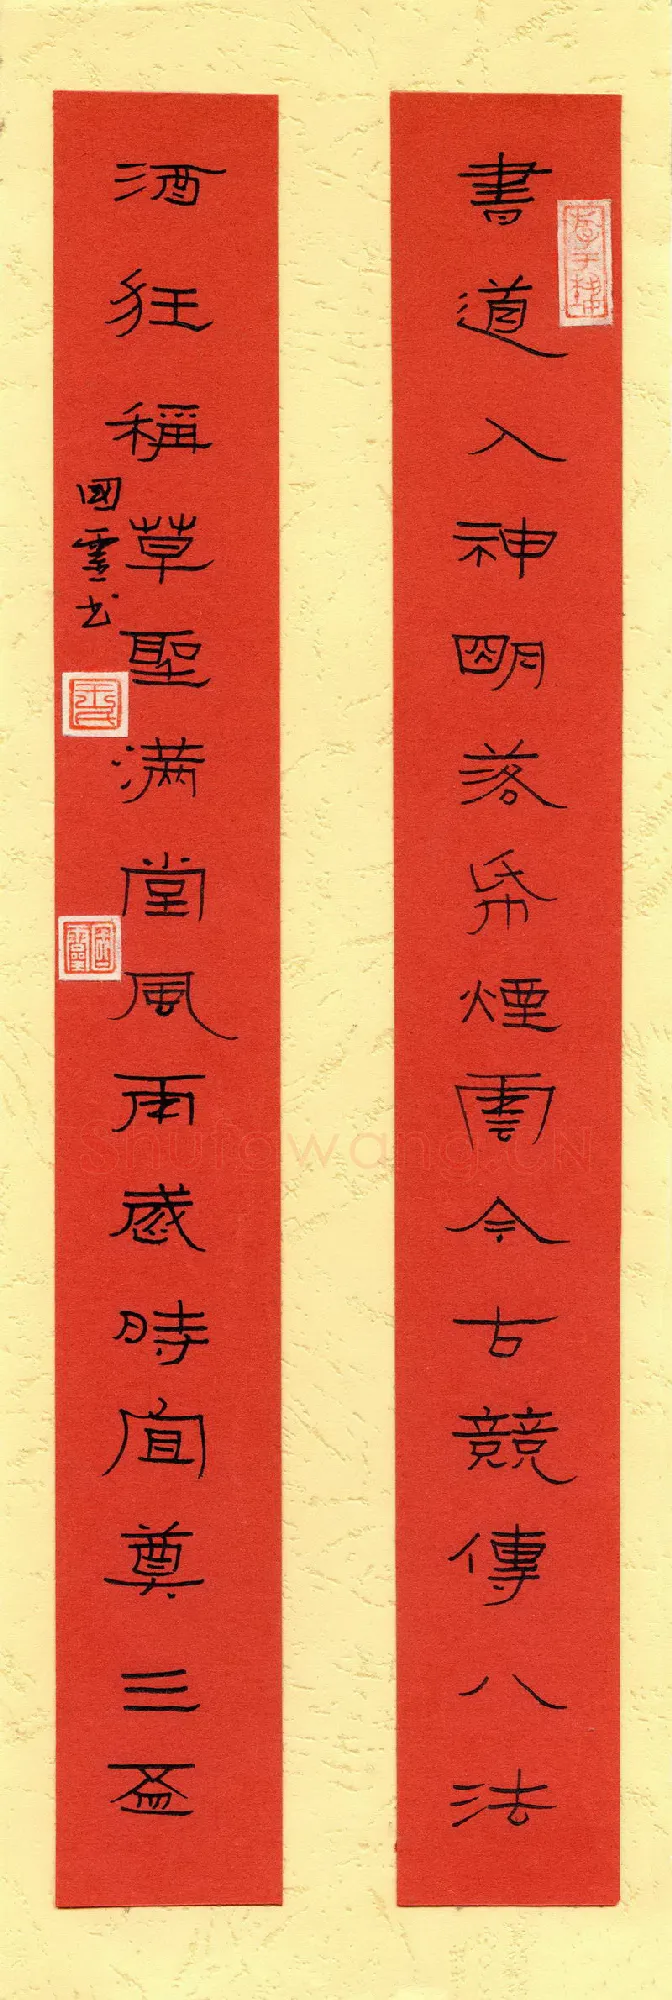 書道入神明落帋煙雲今古競傳八法
酒狂稱草聖满堂風雨感時宜奠三盃
國靈书
Shufawang.CN